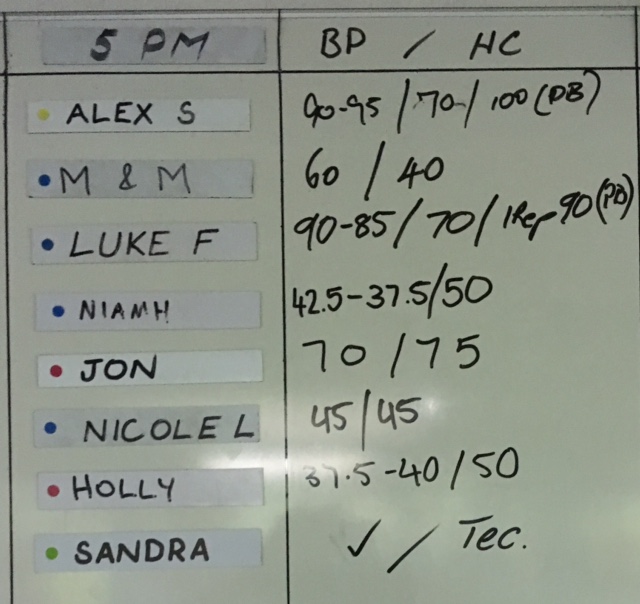 5 PM BP / HC
ALEX S 90-95 / 70 / 100 (PB)
M & M 60 / 40
LUKE F 90-85 / 70 / 1Rep 90 (PB)
NIAMH 42.5-37.5/50
JON 70 / 75
NICOLE L 45/45
HOLLY 37.5-40/50
SANDRA ✓ / Tec.